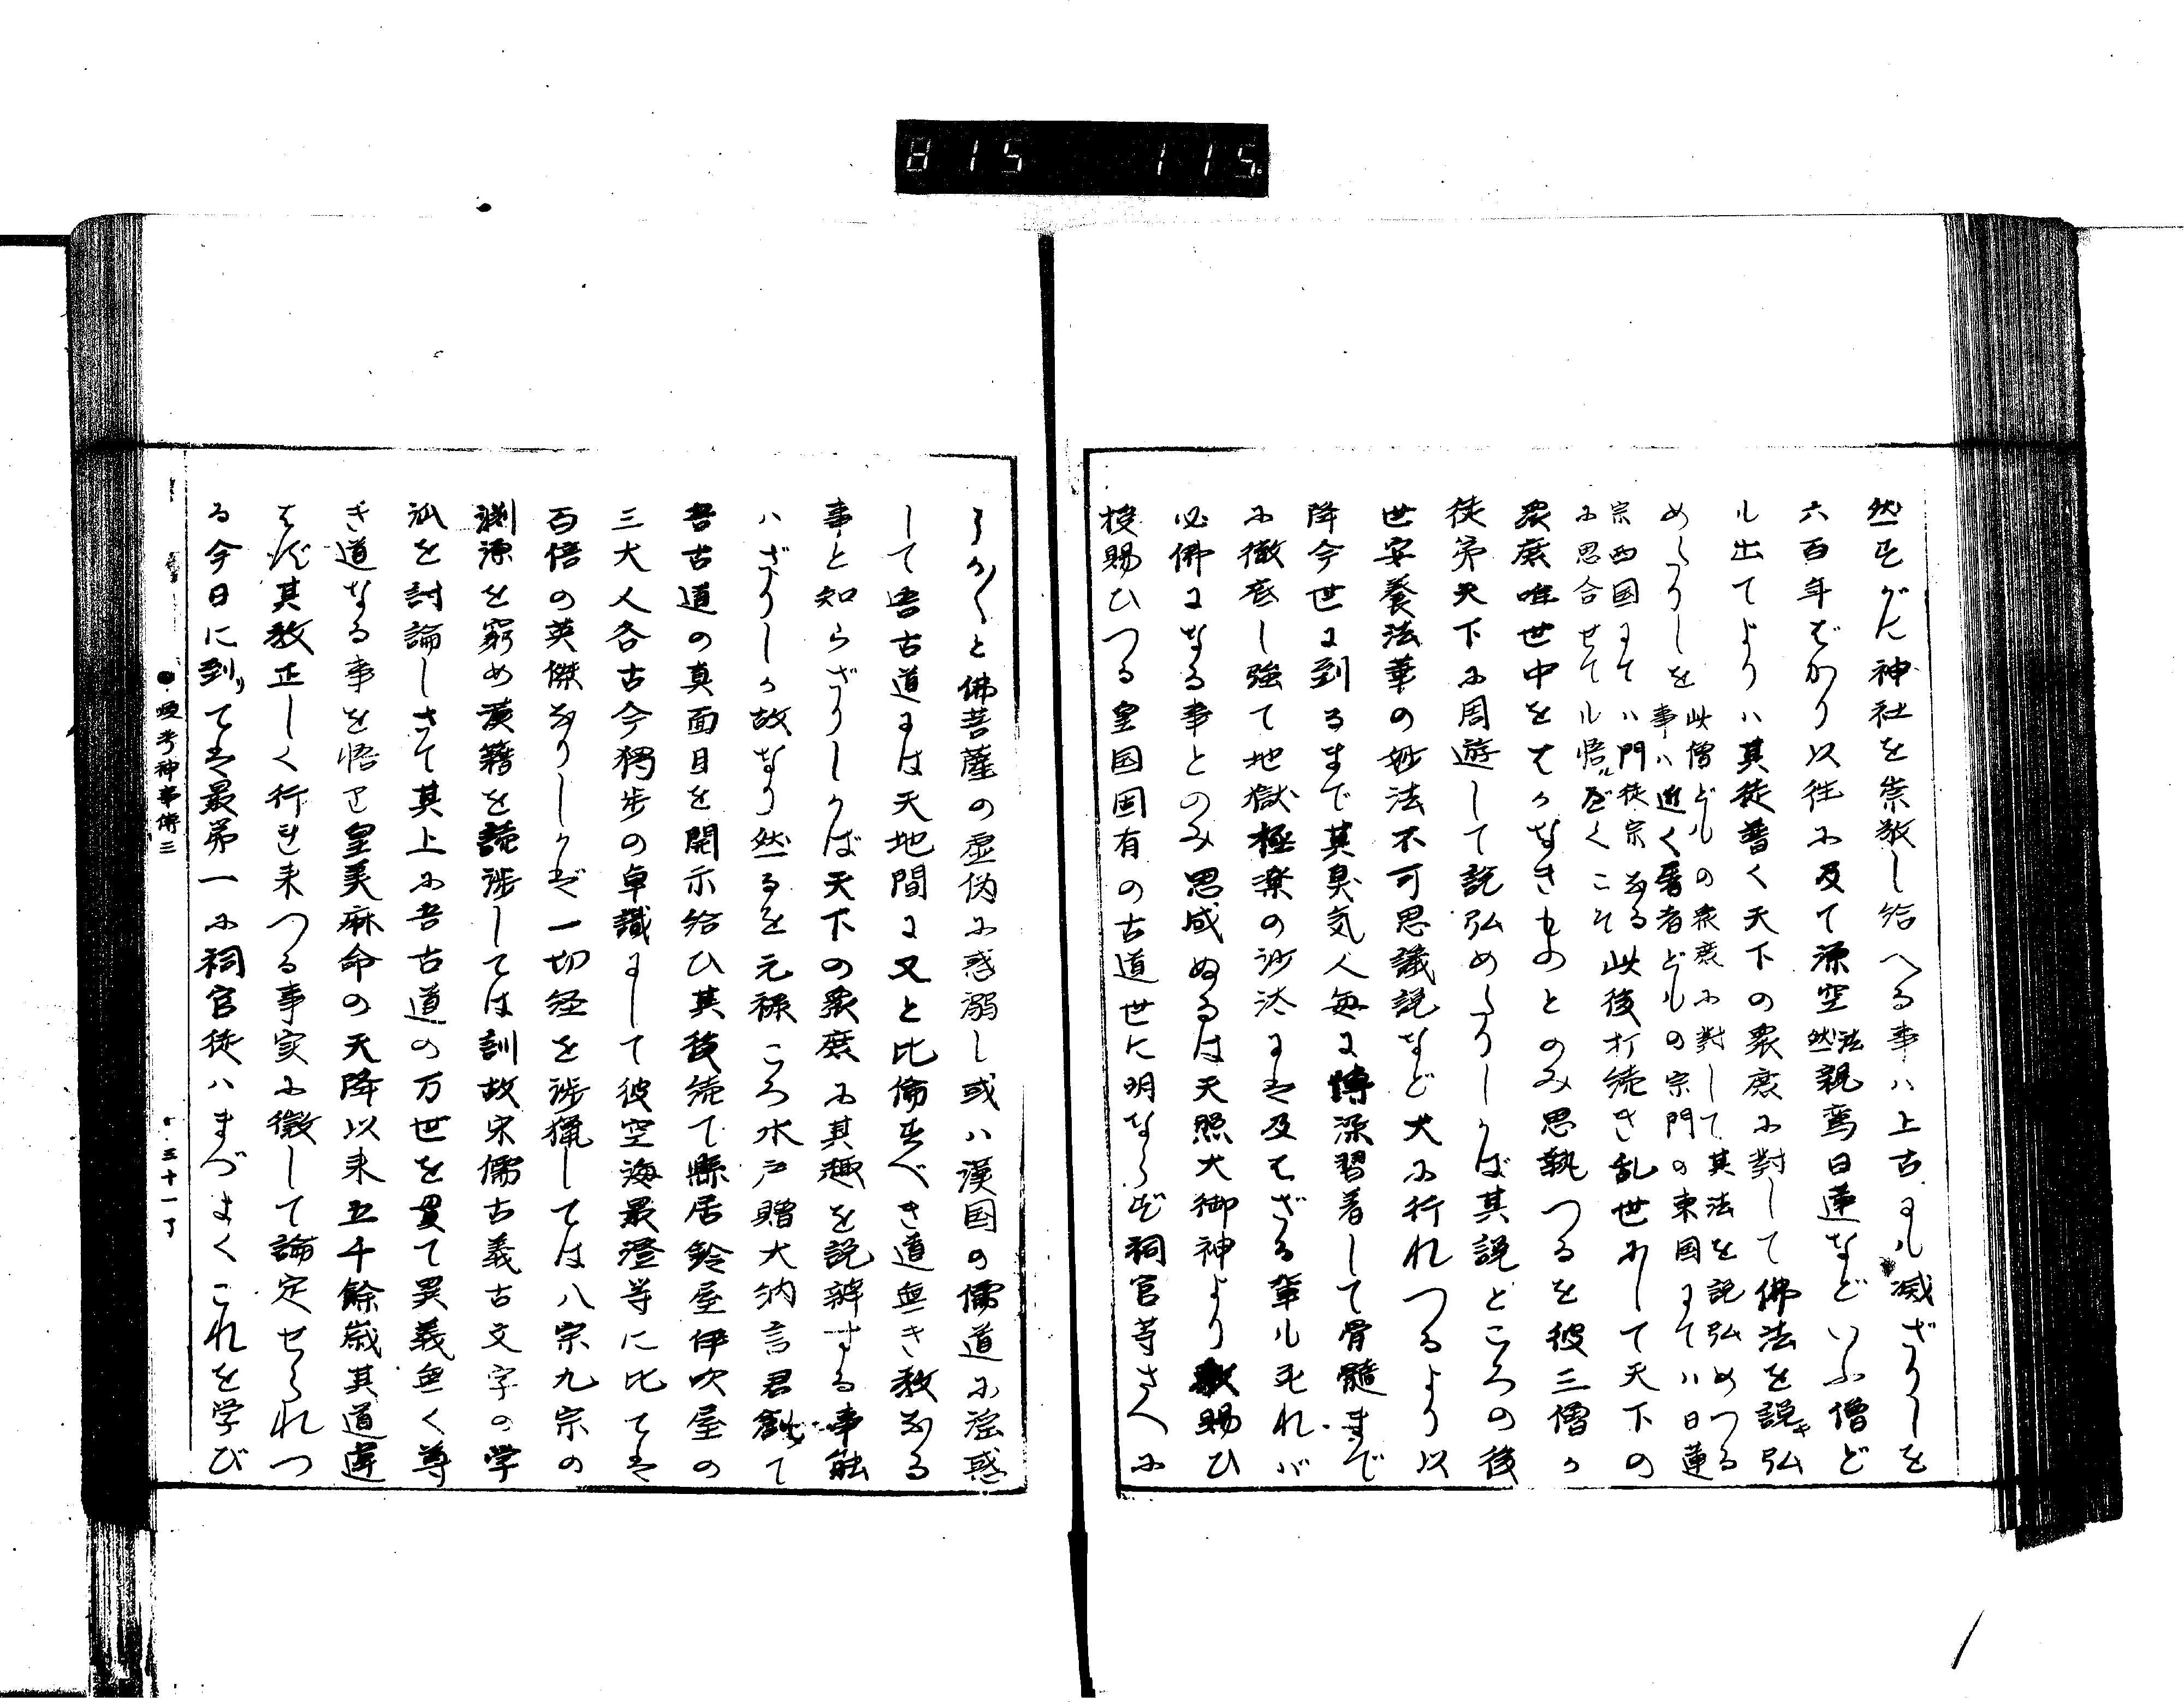 815 115.
然すがに神社を崇敬し給へる事ハ上古にも減ざりしを
六百年ばかり以往に及て源空法然親鸞日蓮などいふ僧ど
も出てよりハ其徒普く天下の衆庶に對して佛法を説き弘
めたりしを
此僧どもの衆庶に對して其法を説弘めつる
事ハ近く暑者どもの宗門の東国にてハ日蓮
宗西国にてハ門徒宗なる
に思合せても悟ルべくこそ
此後打続き乱世にして天下の
衆庶唯世中をはかなきものとのみ思執つるを彼三僧か
徒弟天下に周遊して説弘めたりしかば其説ところの後
世安養法華の妙法不可思議説など大に行れつるより以
降今世に到るまで其臭気人毎に傳染習着して骨髄まで
に徹底し強て地獄極楽の沙汰には及はざる輩も死れバ
必佛になる事とのみ思成ぬるは天照大御神より教賜ひ
授賜ひつる皇国固有の古道世に明ならず祠官等さへに
しかしかと佛菩薩の虚偽に惑溺し或ハ漢国の儒道に淫惑
して吾古道には天地間に又と比倫すべき道無き教なる
事と知らざりしかば天下の衆庶に其趣を説辨する事能
ハざりしか故なり然るを元禄ころ水戸贈大納言君創て
吾古道の真面目を開示給ひ其後続て縣居鈴屋伊吹屋の
三大人各古今獨歩の卓識にして彼空海最澄等に比ては
百倍の英傑なりしかば一切経を渉猟しては八宗九宗の
淵源を窮め漢籍を読渉しては訓故宋儒古義古文字の学
派を討論しさて其上に吾古道の万世を貫て異義無く尊
き道なる事を悟て皇美麻命の天降以来五千餘歳其道違
はず其教正しく行はれ来つる事実に徴して論定せられつ
る今日に到りては最第一に祠官徒ハまづよくこれを学び
神事傳三
三十一丁